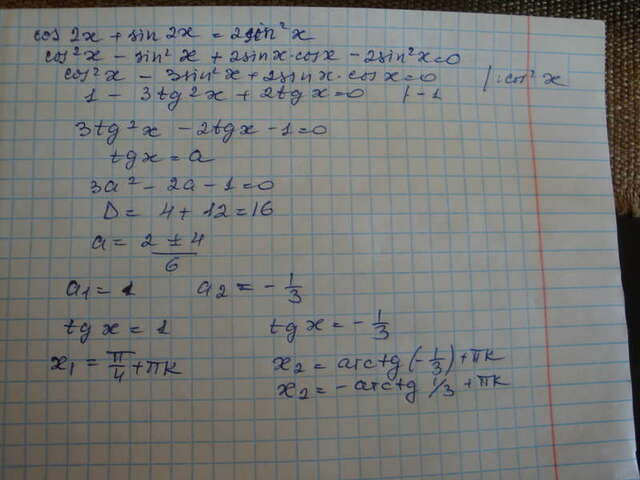 cos 2x + sin 2x = 2 sin² x
cos² x - sin² x + 2sinx·cosx - 2sin² x = 0
cos² x - 3sin² x + 2sinx·cosx = 0 | : cos² x
1 - 3tg² x + 2tgx = 0 | · -1
3tg² x - 2tgx - 1 = 0
tgx = a
3a² - 2a - 1 = 0
D = 4 + 12 = 16
a = (2 ± 4)/6
a₁ = 1 a₂ = - 1/3
tgx = 1 tgx = - 1/3
x₁ = π/4 + πk x₂ = arctg(- 1/3) + πk
x₂ = - arctg 1/3 + πk